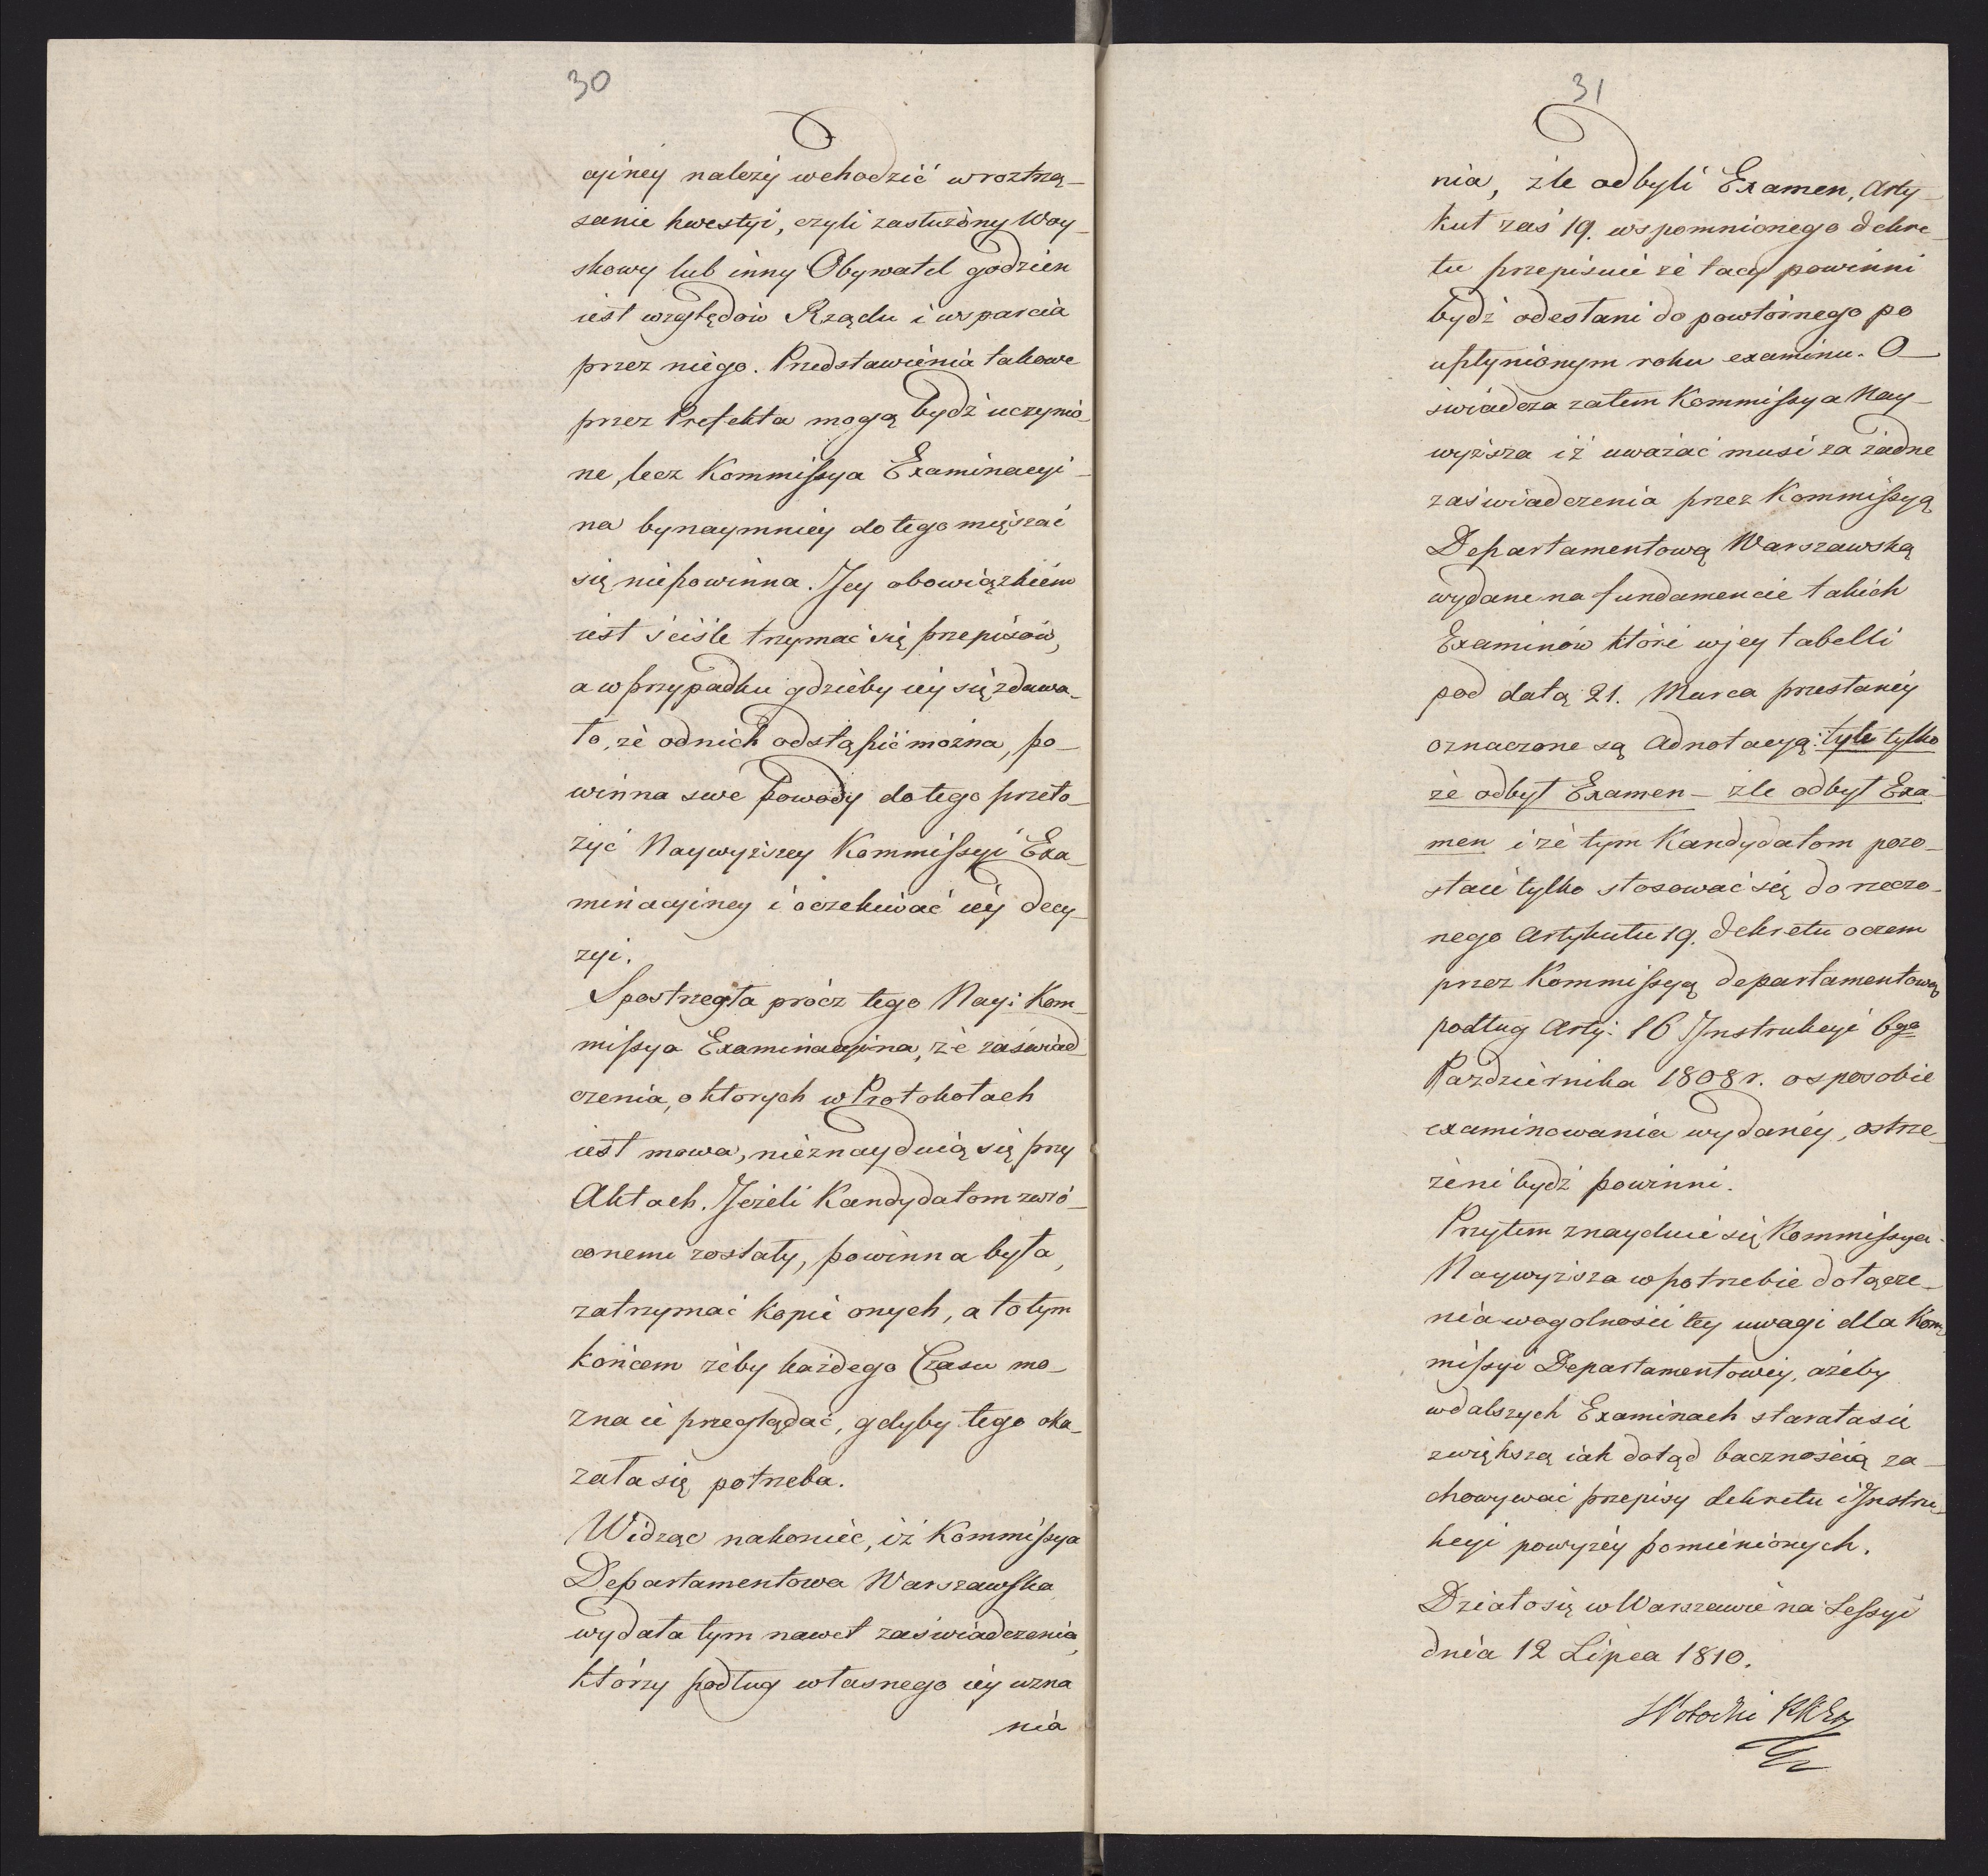 30
cyiney należy wchodzić w roztrzą-
sanie kwestyi, czyli zasłużony Woy-
skowy lub inny Obywatel godzien
iest względów Rządu i wsparcia
przez niego. Przedstawienia takowe
przez Prefekta mogą bydź uczynio-
ne, lecz Kommissya Examinacyi-
na bynaymniey do tego mięszać
się niepowinna. Jey obowiązkiem
iest ściśle trzymać się przepisów,
a w przypadku gdzieby iey się zdawa-
ło, że od nich odstąpić można, po-
winna swe powody do tego przeło-
żyć Naywyższey Kommissyi Exa-
minacyiney i oczekiwać iey decy-
zyi.
Spostrzegła prócz tego Nay: Kom-
missya Examinacyina, że zaświad-
czenia, o ktorych w Protokołach
iest mowa, nieznayduią się przy
Aktach. Jeżeli Kandydatom zwró-
conemi zostały, powinna była,
zatrzymać kopie onych, a to tym
końcem żeby każdego Czasu mo-
żna ie przeglądać, gdyby tego oka-
zała się potrzeba.
Widząc nakoniec, iż Kommissya
Departamentowa Warszawska
wydała tym nawet zaświadczenia,
którzy podług własnego iey uzna
nia
31
nia, źle odbyli Examen, Arty-
kuł zaś 19. wspomnionego dekre-
tu przepisuie że tacy powinni
bydź odesłani do powtórnego po
upłynionym roku examinu. O-
świadcza zatem Kommissya Nay-
wyższa iż uważać musi za żadne
zaświadczenia przez Kommissyą
Departamentową Warszawską
wydane na fundamencie takich
Examinów które w jey tabelli
pod datą 21. Marca przesłaney
oznaczone są adnotacyą: tyle tylko
że odbył Examen - źle odbył Exa-
men i że tym Kandydatom pozo-
staie tylko stosować się do rzeczo-
nego Artykułu 19. dekretu o czem
przez Kommissyą departamentową
podług Arty: 16 Instrukcyi 6go
Października 1808 r. o sposobie
examinowania wydaney, ostrze-
żeni bydź powinni.
Przytem znayduie się Kommissya
Naywyższa w potrzebie dołącze-
nia w ogolności tey uwagi dla Kom-
missyi Departamentowey, ażeby
w dalszych Examinach starała sie
z większą iak dotąd bacznością za-
chowywać przepisy dekretu i Instru-
kcyi powyżey pomienionych.
Działo się w Warszawie na Sessyi
dnia 12 Lipca 1810.